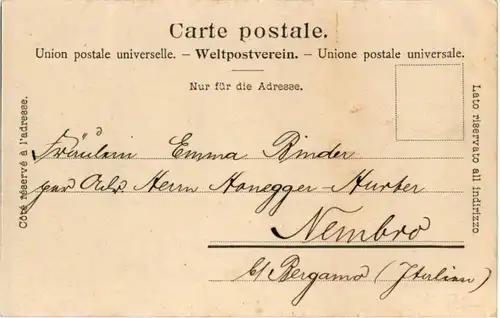 Carte postale.
Union postale universelle. – Weltpostverein. – Unione postale universale.
Nur für die Adresse.
Côté réservé à l'adresse.
Lato riservato all indirizzo
Fräulein Emma Binder
per Adr. Herrn Honegger-Hurter
Nembro
b/ Bergamo (Italien)